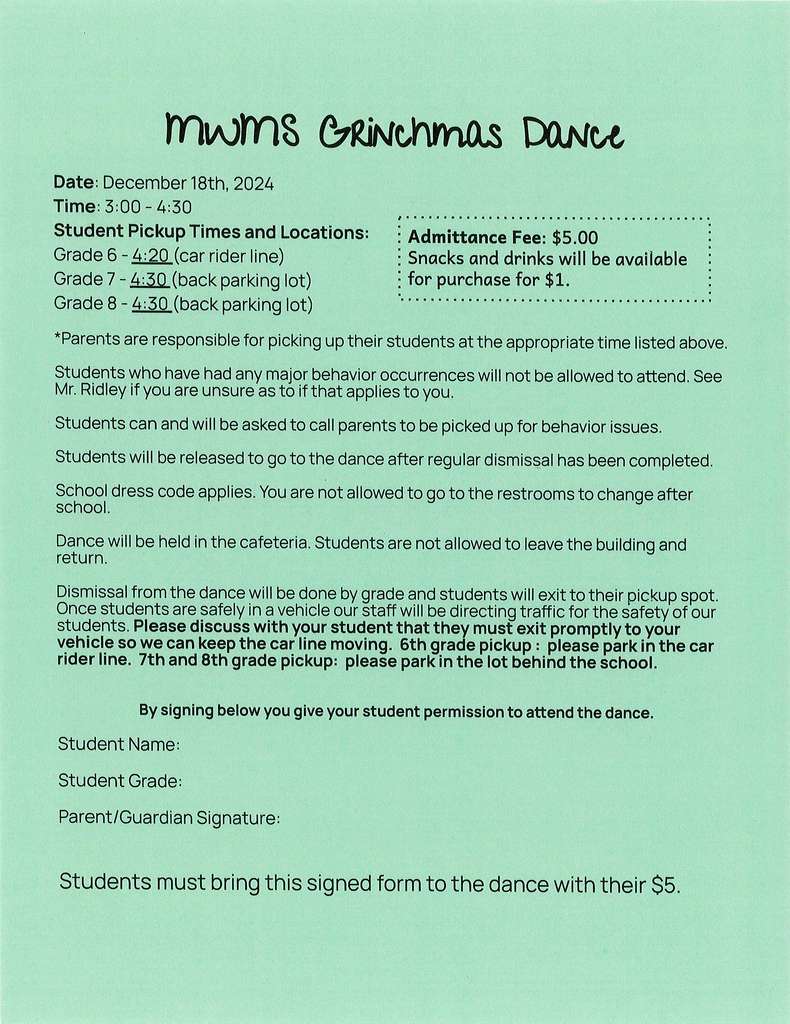 MWMS GRiNchmas DaNce
Date: December 18th, 2024
Time: 3:00 - 4:30
Student Pickup Times and Locations:
Grade 6 - 4:20 (car rider line)
Grade 7 - 4:30 (back parking lot)
Grade 8 - 4:30 (back parking lot)
Admittance Fee: $5.00
Snacks and drinks will be available
for purchase for $1.
*Parents are responsible for picking up their students at the appropriate time listed above.
Students who have had any major behavior occurrences will not be allowed to attend. See
Mr. Ridley if you are unsure as to if that applies to you.
Students can and will be asked to call parents to be picked up for behavior issues.
Students will be released to go to the dance after regular dismissal has been completed.
School dress code applies. You are not allowed to go to the restrooms to change after
school.
Dance will be held in the cafeteria. Students are not allowed to leave the building and
return.
Dismissal from the dance will be done by grade and students will exit to their pickup spot.
Once students are safely in a vehicle our staff will be directing traffic for the safety of our
students. Please discuss with your student that they must exit promptly to your
vehicle so we can keep the car line moving. 6th grade pickup : please park in the car
rider line. 7th and 8th grade pickup: please park in the lot behind the school.
By signing below you give your student permission to attend the dance.
Student Name:
Student Grade:
Parent/Guardian Signature:
Students must bring this signed form to the dance with their $5.